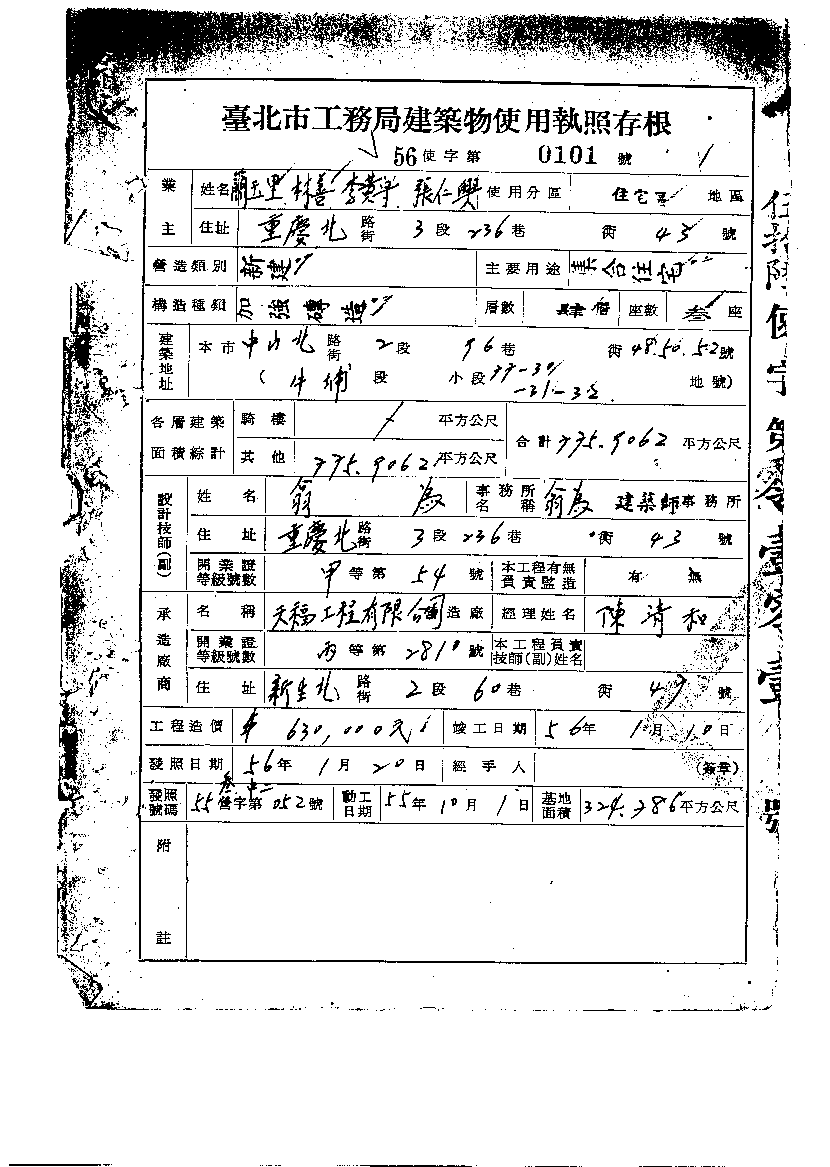 臺北市工務局建築物使用執照存根
56使字第 0101 號
業主 姓名 林善 張仁興 使用分區 住宅區 地區
住址 重慶北路街 3段 236巷 街 43號
營造類別 新建 主要用途 集合住宅
構造種類 加強磚造 層數 肆層 座數 叁座
建築地址 本市 中山北路街 2段 96巷 街 48.50.52號
( 牛埔段 小段 -31-32 地號)
各層建築面積綜計 騎樓 / 平方公尺 合計 775.9062 平方公尺
其他 775.9062 平方公尺
設計技師(副) 姓名 翁為 事務所名稱 翁為建築師事務所
住址 重慶北路街 3段 236巷 街 43號
開業證等級號數 甲等第 54 號 本工程有無負責監造 有 無
承造廠商 名稱 天福工程有限公司造廠 經理姓名 陳清和
開業證等級號數 丙等第 2810 號 本工程負責技師(副)姓名
住址 新生北路街 2段 60巷 街 號
工程造價 630,000元 竣工日期 56年 10日
發照日期 56年 1月 20日 經手人 (簽章)
發照號碼 55 字第 052 號 動工日期 55年 10月 1日 基地面積 324.786平方公尺
附註
使字第零壹零壹號